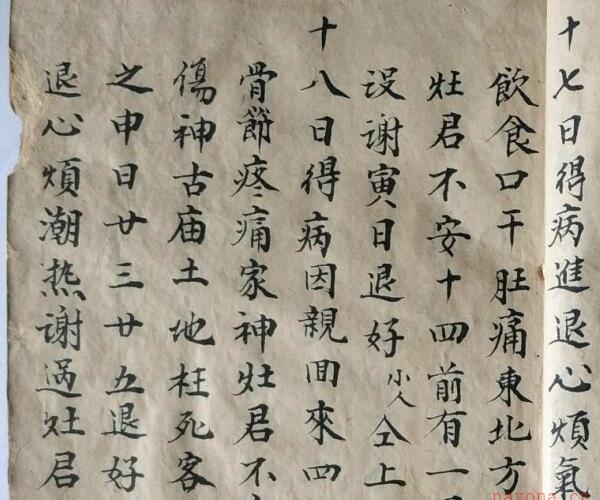 十七日得病進退心煩氣
飲食口干肚痛東北方
灶君不安十四前有一
没謝寅日退好小人仝上
十八日得病因親囬來四
骨節疼痛家神灶君不
傷神古庙土地枉死客
之申日廿三廿五退好
退心煩潮热謝過灶君
nayona.cn